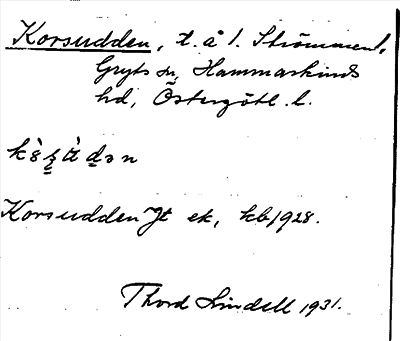 Korsudden, t. å l. Strömmen l.
Gryts sn, Hammarkinds
hd, Östergötl. l.
Korsudden Jt ek, kb 1928.
Thord Lindell 1931.